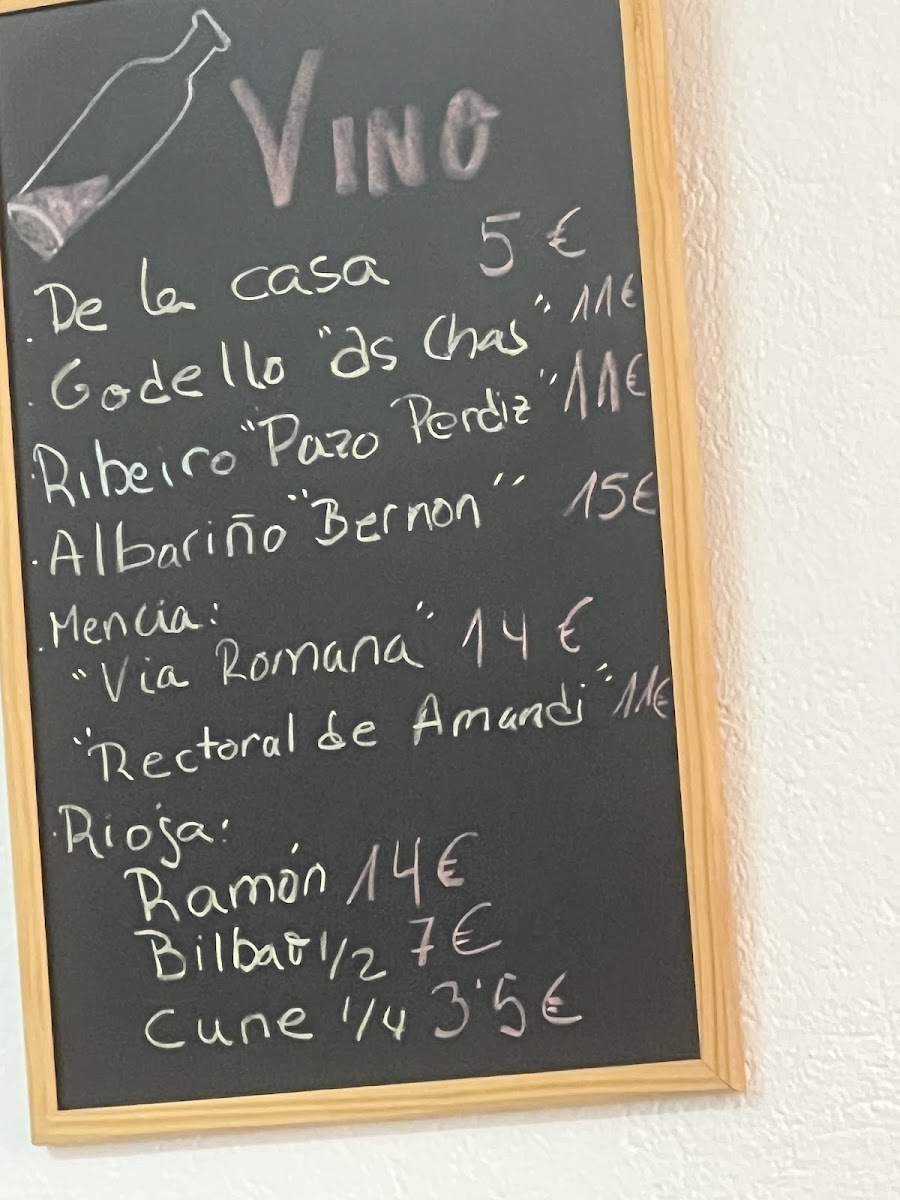 VINO
. De la casa 5 €
. Godello "As Chas" 11€
. Ribeiro "Pazo Perdiz" 11€
. Albariño "Bernon" 15€
. Mencia:
"Via Romana" 14 €
"Rectoral de Amandi" 11€
. Rioja:
Ramón 14€
Bilbao 1/2 7€
Cune 1/4 3'5€